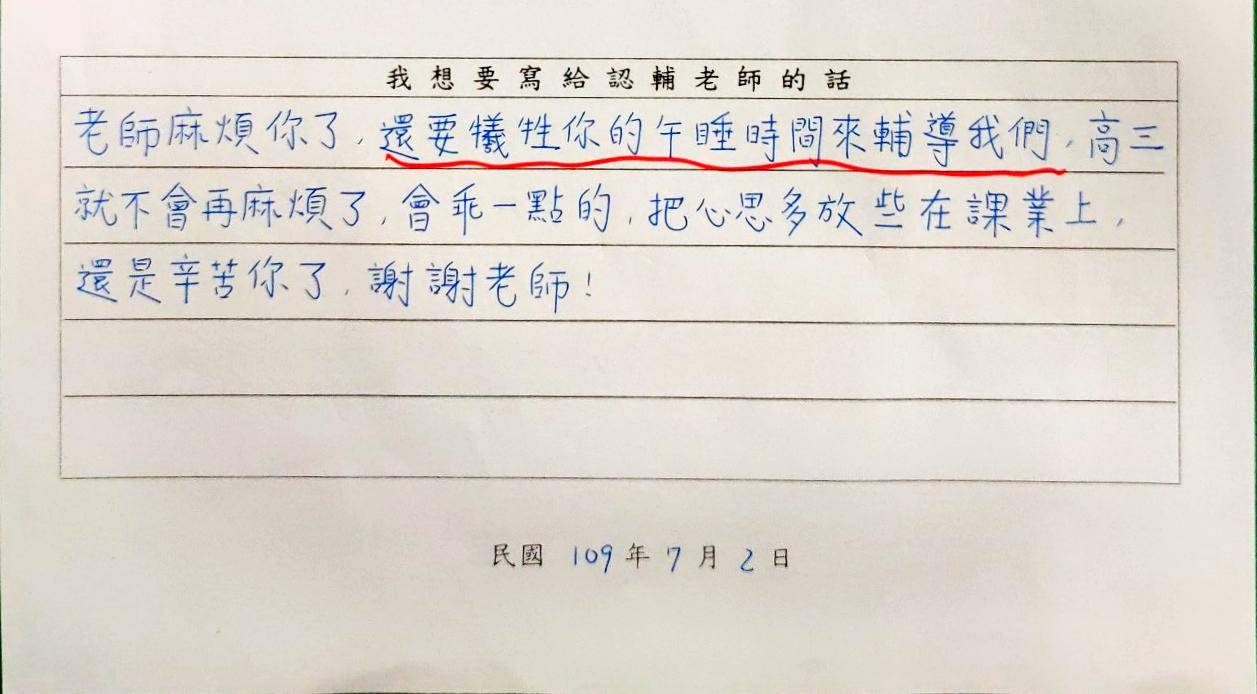 我想要寫給認輔老師的話
老師麻煩你了，還要犧牲你的午睡時間來輔導我們，高三
就不會再麻煩了，會乖一點的，把心思多放些在課業上，
還是辛苦你了，謝謝老師！
民國 109 年 7 月 2 日